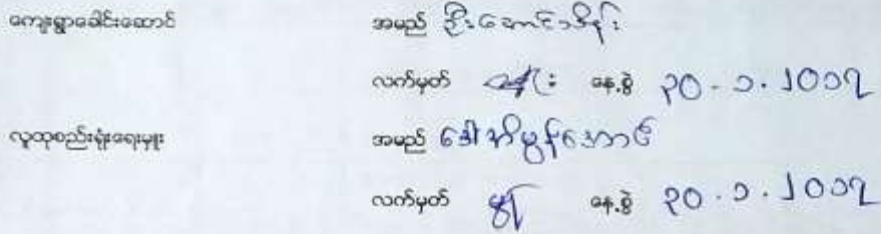 ကျေးရွာခေါင်းဆောင် အမည် ဦးအောင်သိန်း
လက်မှတ် နေ့စွဲ ၃၀.၁.၂၀၁၇
လူထုစည်းရုံးရေးမှူး အမည် ဒေါ်အိမွန်အောင်
လက်မှတ် နေ့စွဲ ၃၀.၁.၂၀၁၇